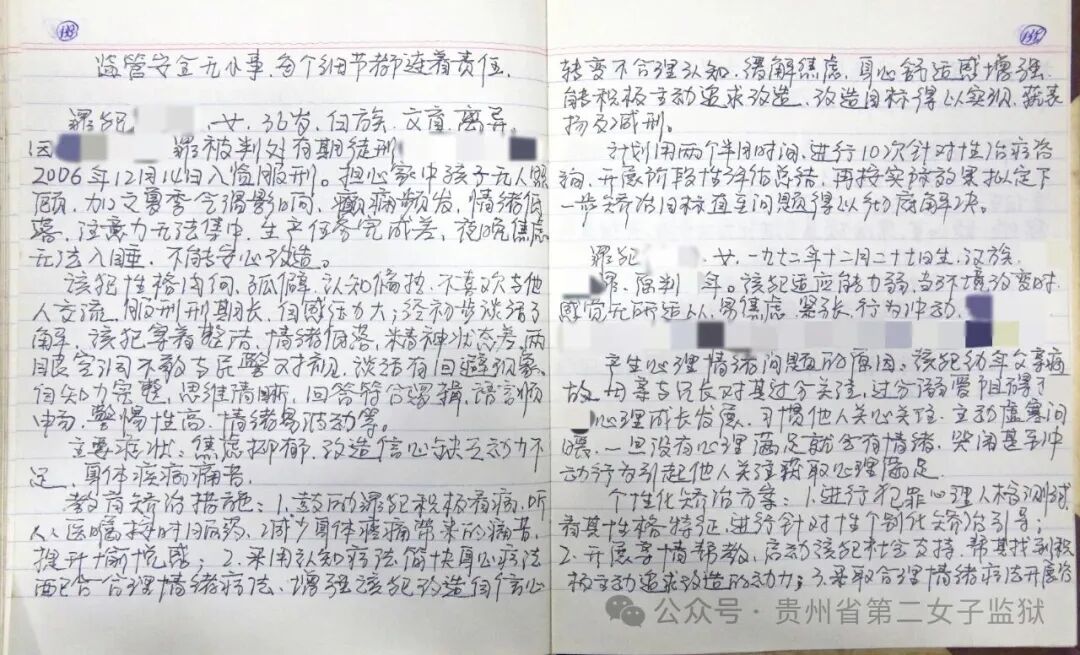 133
监管安全无小事,每个细节都连着责任.
罪犯 、女、36岁、白族、文盲、离异、
因 罪被判处有期徒刑
2006年12月14日入监服刑。担心家中孩子无人照
顾,加之夏季气温影响,癫痫频发,情绪低
落,注意力无法集中,生产任务完成差,夜晚焦虑
无法入睡,不能安心改造。
该犯性格内向、孤僻、认知偏执,不喜欢与他
人交流,服刑刑期长,自感压力大;经初步谈话了
解,该犯穿着整洁,情绪低落,精神状态差,两
眼空洞不敢与民警对视,谈话有回避现象,
自知力完整,思维清晰,回答符合逻辑,语言顺
畅,警惕性高,情绪易波动等。
主要症状:焦虑抑郁,改造信心缺乏动力不
足,身体疾病痛苦.
教育矫治措施:1.鼓励罪犯积极看病,听
从医嘱按时用药,减少身体疼痛带来的痛苦,
提升愉悦感;2.采用认知疗法、愉快身心疗法
配合合理情绪疗法,增强该犯改造自信心
转变不合理认知,缓解焦虑,身心舒适感增强,
能积极主动追求改造,改造目标得以实现,获表
扬及减刑。
计划用两个半月时间,进行10次针对性治疗咨
询,开展阶段性评估总结,再按实际效果拟定下
一步矫治目标直至问题得以彻底解决。
罪犯 、女、一九七二年十二月二十七日生,汉族,
罪,原判 年。该犯适应能力弱,当环境改变时,
感觉无所适从,易焦虑,紧张,行为冲动.
产生心理情绪问题的原因:该犯幼年父亲病
故,母亲与兄长对其过分关注,过分溺爱阻碍了
心理成长发展,习惯他人关心关注,主动嘘寒问
暖,一旦没有心理满足就会有情绪,哭闹甚至冲
动行为引起他人关注获取心理满足.
个性化矫治方案:1.进行犯罪心理人格测试,
看其性格特征,进行针对性个别化矫治引导;
2.开展亲情帮教,启动该犯社会支持,帮其找到积
极主动追求改造的动力;3.采取合理情绪疗法开展咨
公众号·贵州省第二女子监狱